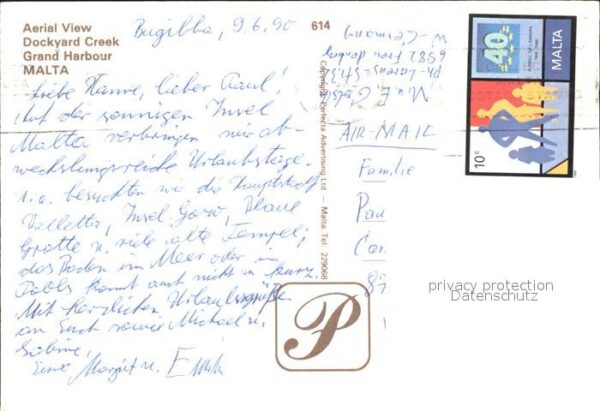 Aerial View
Dockyard Creek
Grand Harbour
MALTA
614
Bugibba, 9.6.90
Liebe Hanne, lieber Paul,
Auf der sonnigen Insel
Malta verbringen wir ab-
wechslungsreiche Urlaubstage.
u.a. besuchten wir die Hauptstadt
Valletta, Insel Gozo, Blaue
Grotte u. viele alte Tempel;
das Baden im Meer oder im
kommt auch nicht zu kurz.
Mit herzlichen Urlaubsgrüßen
an Euch sowie Michael u.
Sabine,
Eure Margit u.
Copyright Perfecta Advertising Ltd — Malta Tel: 229068
M. u. E.
W-Germany
AIR-MAIL
Familie
P
40
MALTA
10c
privacy protection
Datenschutz